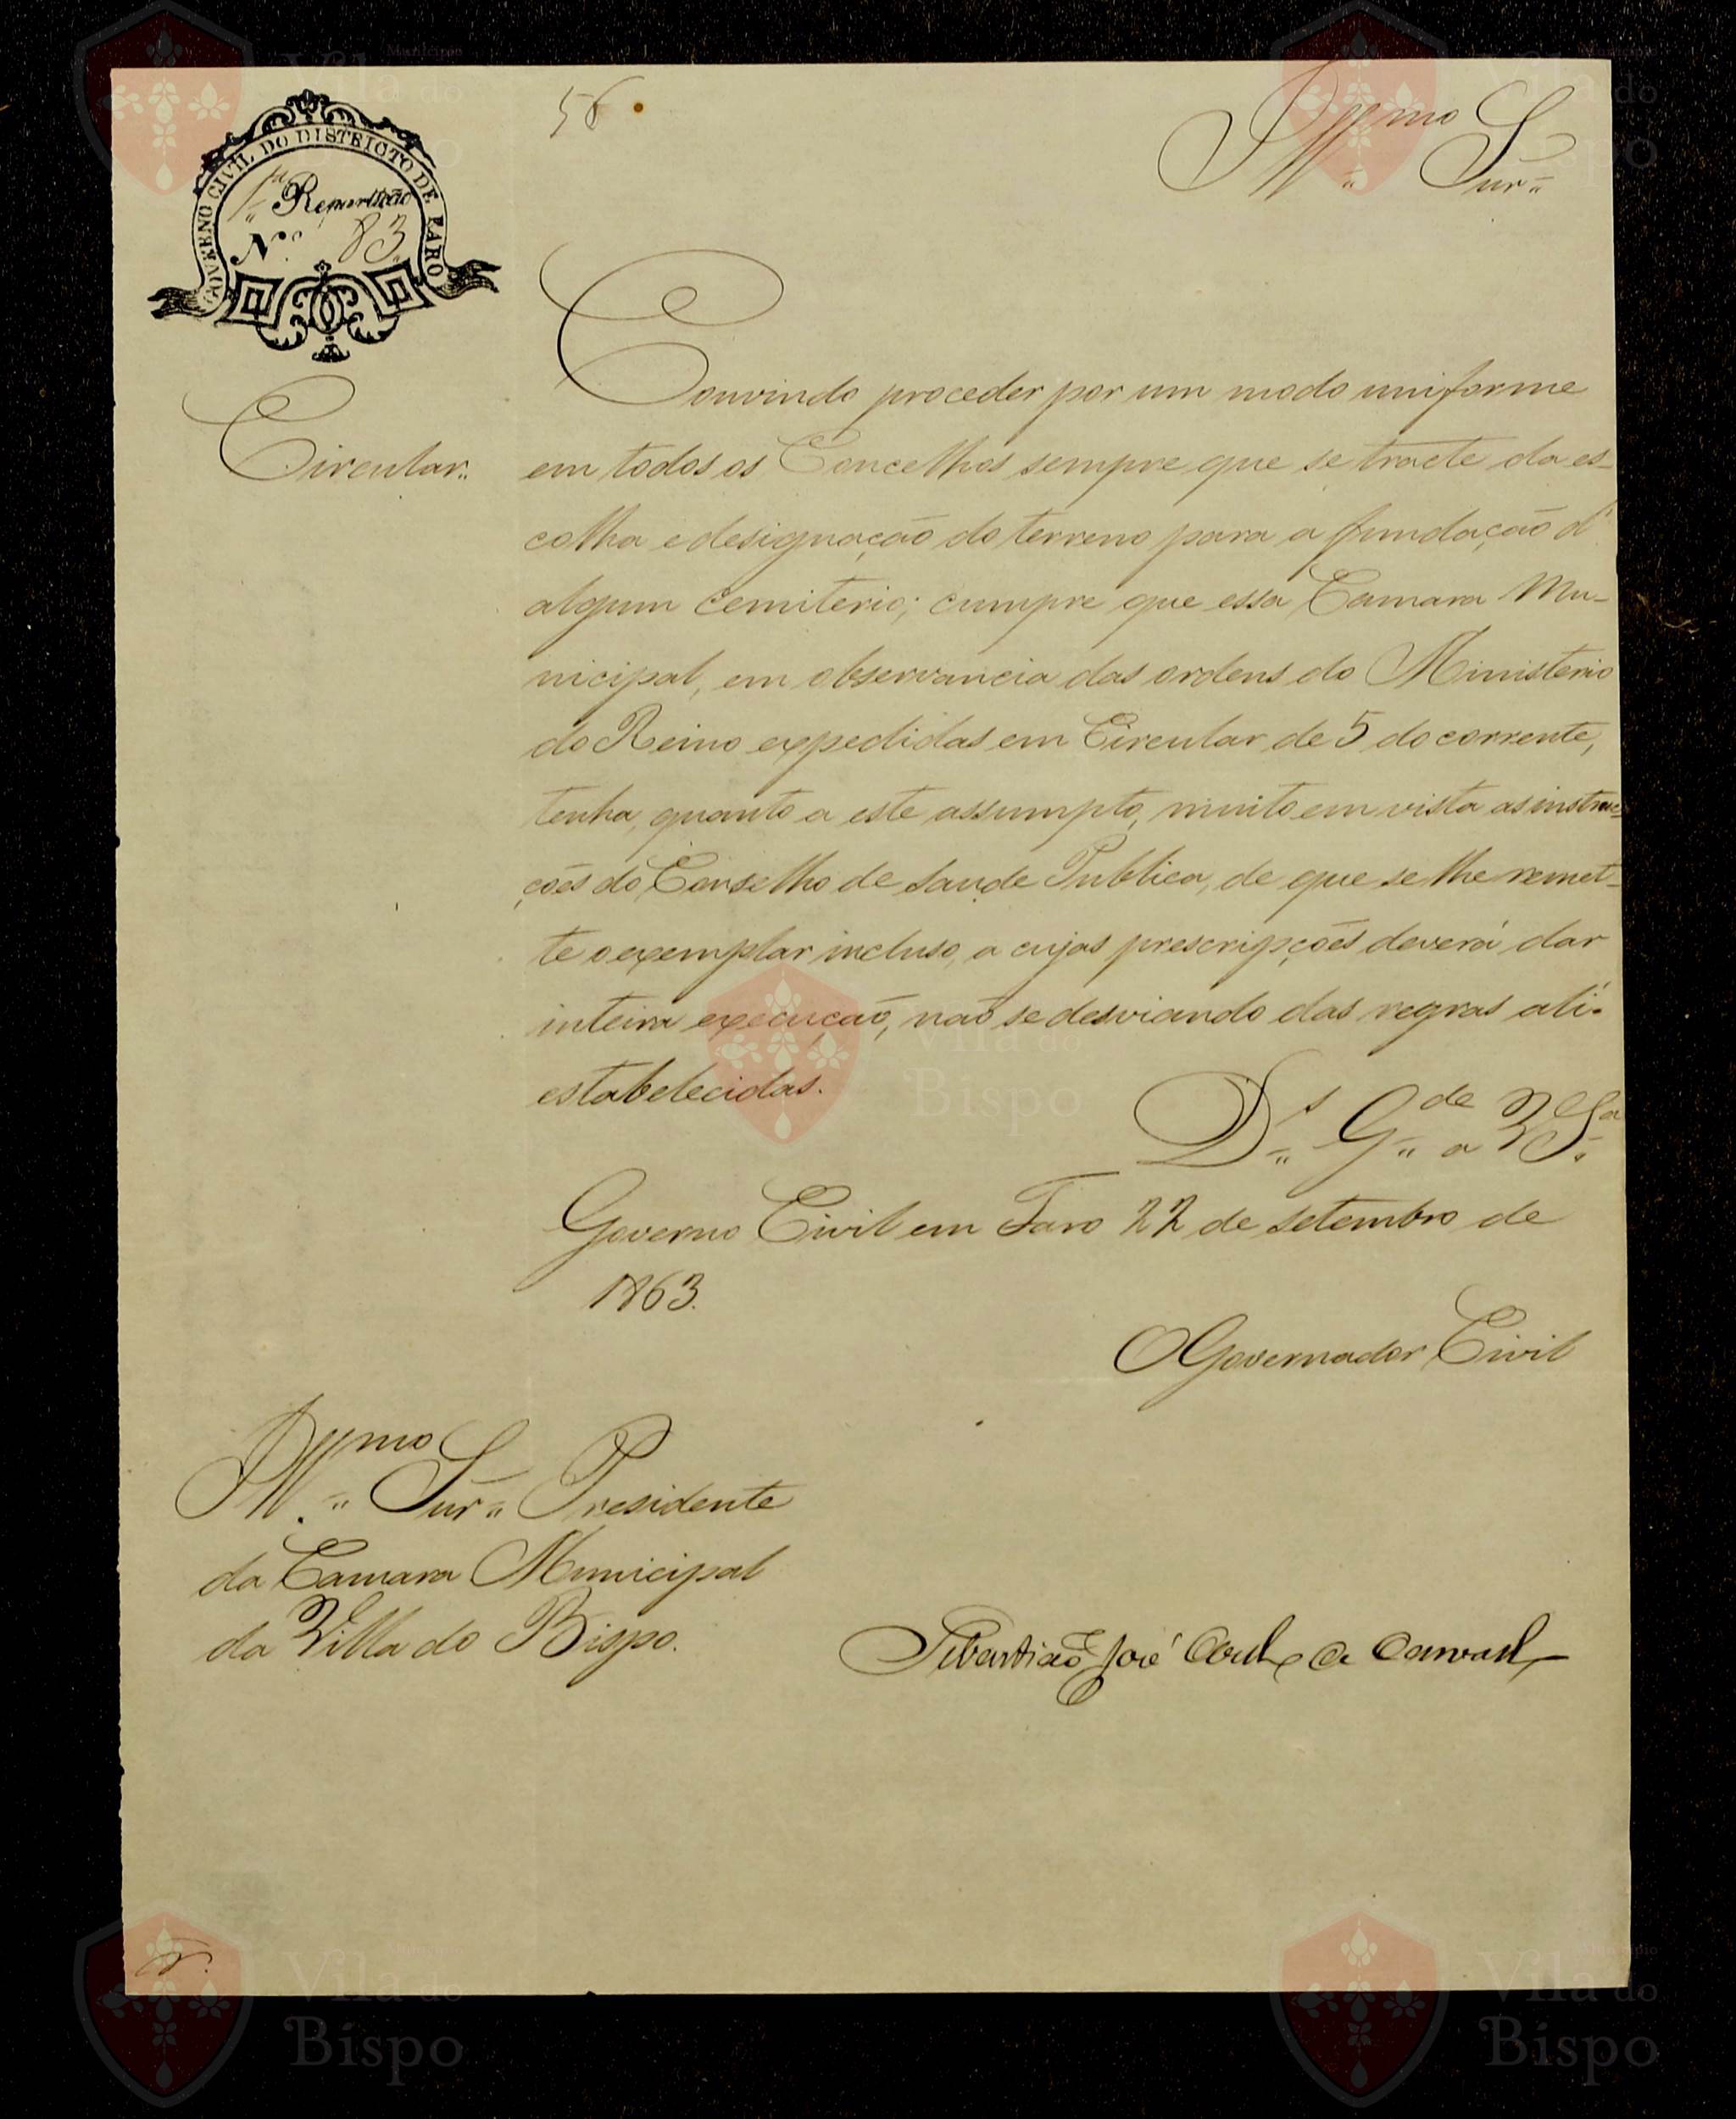 56
GOVERNO CIVIL DO DISTRICTO DE FARO
1.ª Repartição
N.º 83.
Ill.mo Snr.
Circular.
Convindo proceder por um modo uniforme
em todos os Concelhos sempre que se tracte da es-
colha e designação do terreno para a fundação d'
algum cemiterio; cumpre que essa Camara Mu-
nicipal, em observancia das ordens do Ministerio
do Reino expedidas em Circular de 5 do corrente,
tenha, quanto a este assumpto, muito em vista as instruc-
ções do Conselho de Saude Publica, de que se lhe remet-
te o exemplar incluso, a cujas prescripções deverá dar
inteira execução, não se desviando das regras ali
estabelecidas.
D.s G.de a V. S.a
Governo Civil em Faro 22 de Setembro de
1863.
O Governador Civil
Ill.mo Snr. Presidente
da Camara Municipal
da Villa do Bispo.
Sebastião José
Município
Vila do
Bispo